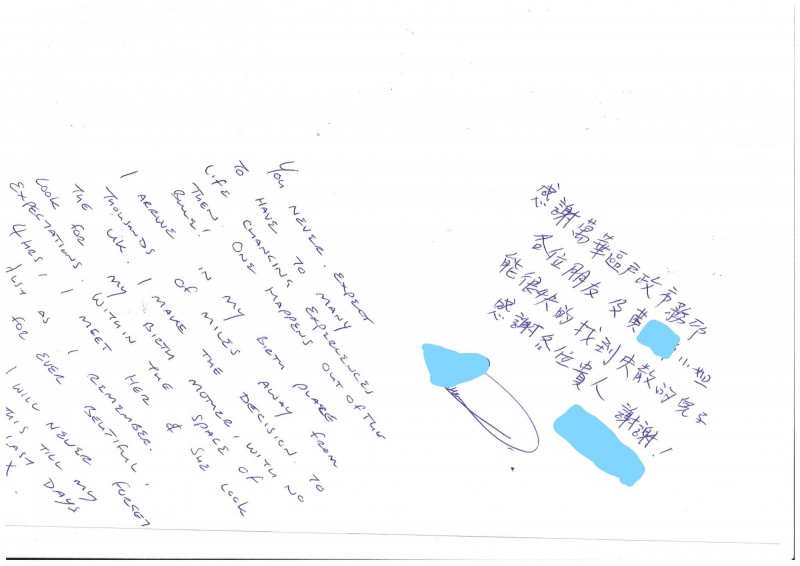 YOU NEVER EXPECT
TO HAVE TO MANY
LIFE CHANGING EXPERIENCES
THEN ONE HAPPENS OUT OF THE
BLUE!
I ARRIVE IN MY BIRTH PLACE
THOUSANDS OF MILES AWAY FROM
THE UK. I MAKE THE DECISION TO
LOOK FOR MY BIRTH MOTHER, WITH NO
EXPECTATIONS. WITHIN THE SPACE OF
4HRS! I MEET HER & SHE LOOK
JUST AS I REMEMBER.
FOR EVER BEUTIFUL,
I WILL NEVER FORGET
THIS TILL MY
LAST DAYS
X.
感謝萬華區戶政市務所
各位朋友及黃小姐
能很快的找到失散的兒子
感謝各位貴人 謝謝!